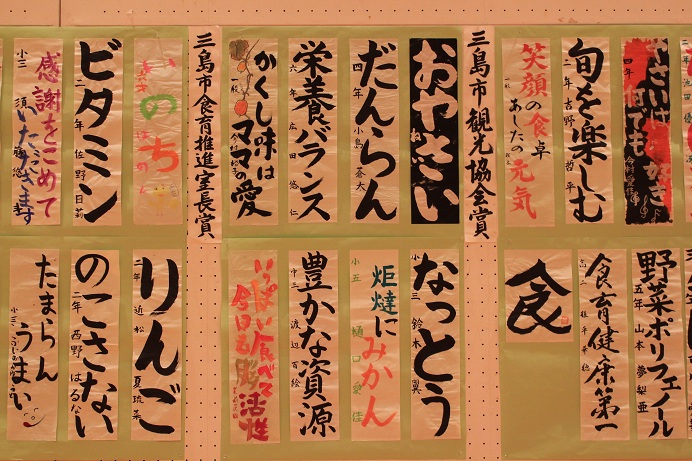 笑顔の食卓
あしたの元気
旬を楽しむ
二年 吉野 哲平
何でも
四年
食
食育健康第一
野菜ポリフェノール
五年 山本 夢梨亜
三島市観光協会賞
おやさい
だんらん
四年 小島 蒼大
栄養バランス
六年 広田 悠仁
かくし味は
ママの愛
一般
なっとう
小三 鈴木 翼
炬燵にみかん
小五 樋口 愛佳
豊かな資源
中三 渡辺 百絵
いっぱい食べて
今日も脳活性
三島市食育推進室長賞
いのち
ビタミン
二年 佐野 日莉
感謝をこめて
いただきます
小三
りんご
二年 近松 夏琉菜
のこさない
二年 西野 はるな
たまらん
うまい
小三